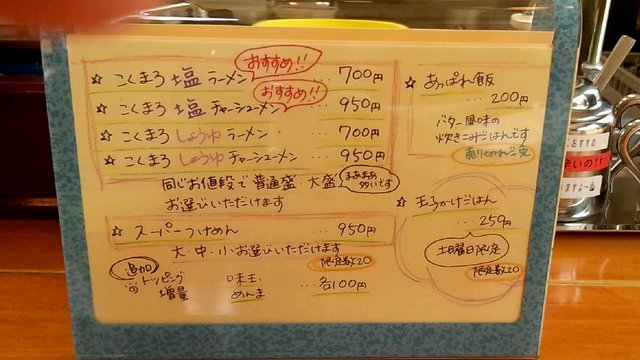 おすすめ!!
☆ こくまろ 塩 ラーメン ... 700円
おすすめ!!
☆ こくまろ 塩 チャーシューメン ... 950円
☆ こくまろ しょうゆ ラーメン ... 700円
☆ こくまろ しょうゆ チャーシューメン ... 950円
同じお値段で普通盛・大盛
まあまあ
多いです
お選びいただけます
☆ スーパーつけめん ... 950円
大・中・小お選びいただけます
限定数20
追加
トッピング 味玉
増量 めんま ... 各100円
☆ あっぱれ飯
... 200円
バター風味の
炊きこみごはんです
売り切れご免
☆ 玉子かけごはん
... 250円
土曜日限定
限定数20
おすすめ
辛いの!!
ますよ〜